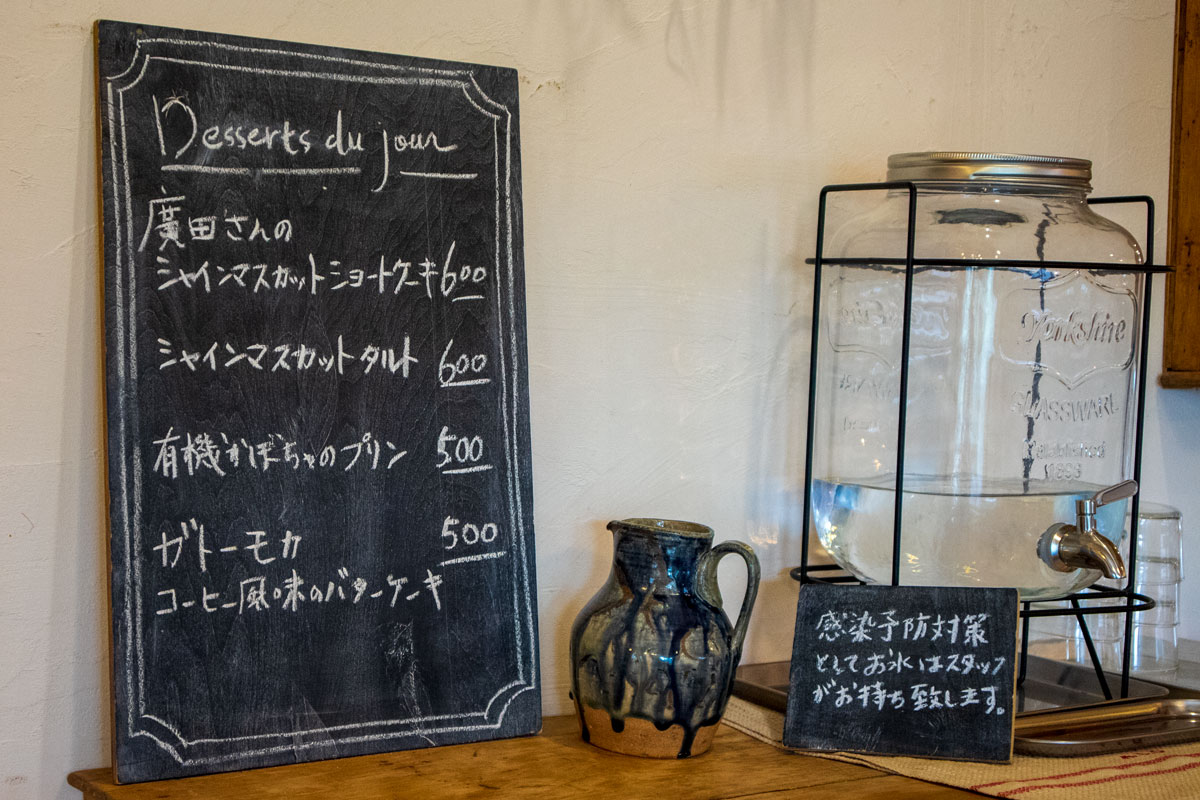 Desserts du jour
廣田さんの
シャインマスカットショートケーキ 600
シャインマスカットタルト 600
有機かぼちゃのプリン 500
ガトーモカ 500
コーヒー風味のバターケーキ
Yorkshire
GLASSWARE
Established
1898
感染予防対策
としてお水はスタッフ
がお持ち致します。